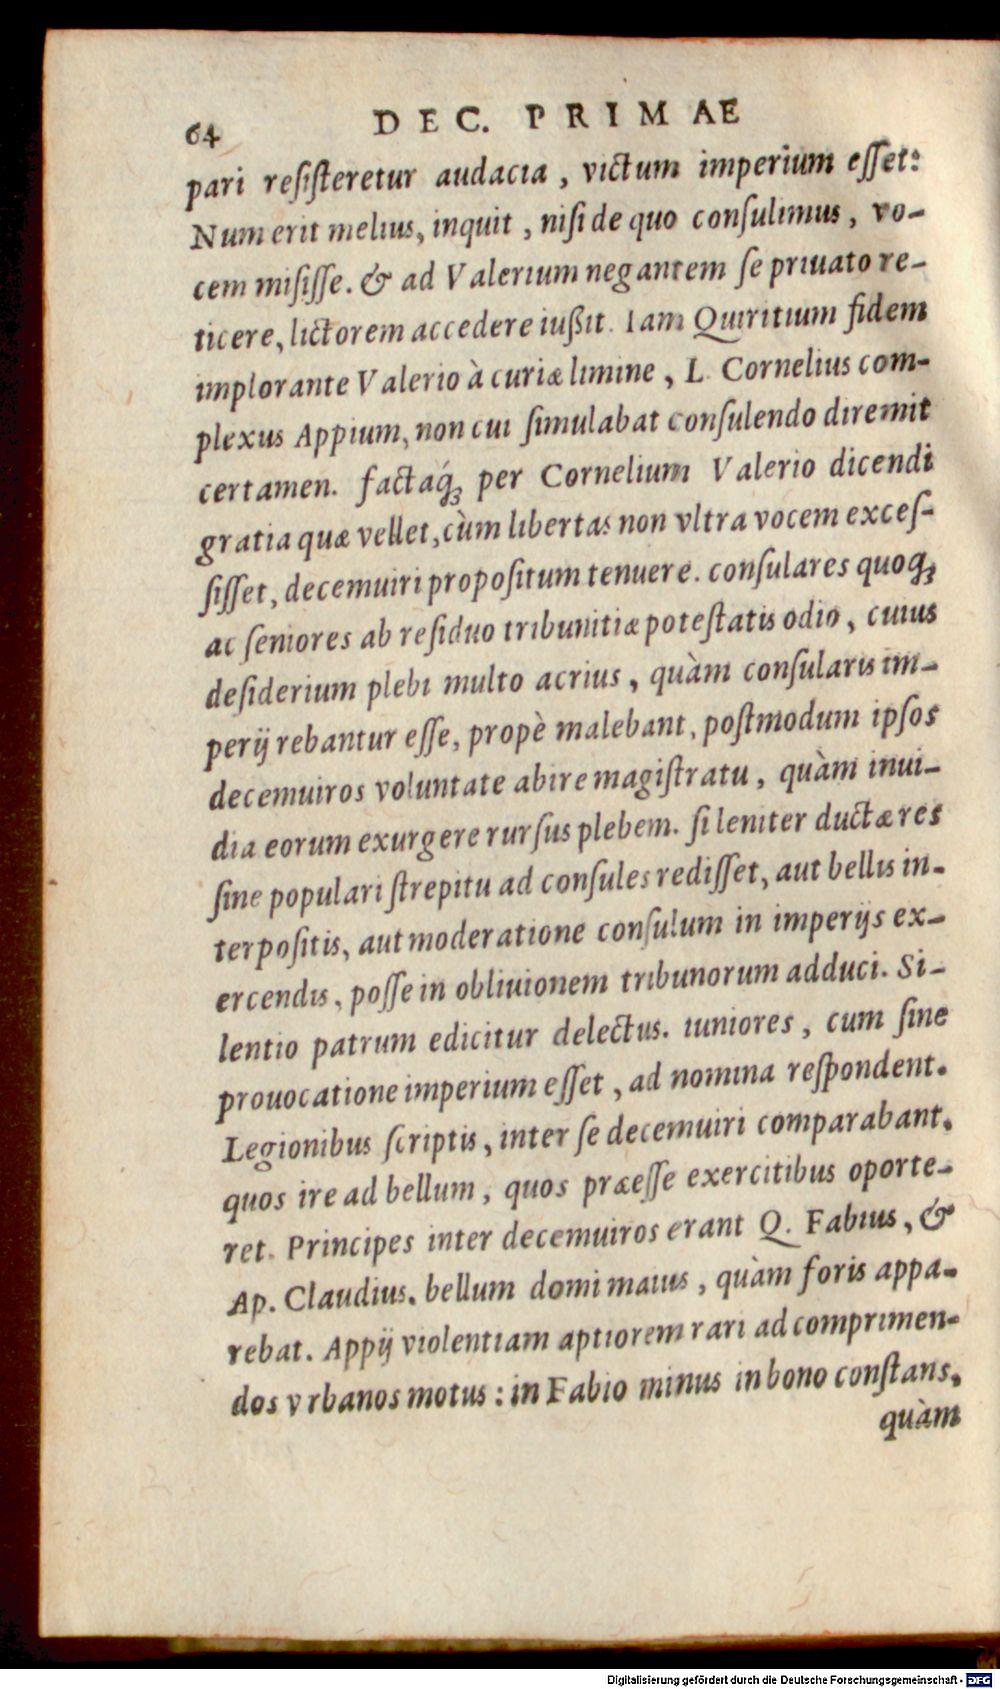 64 DEC. PRIMAE
pari resisteretur audacia, victum imperium esset:
Num erit melius, inquit, nisi de quo consulimus, vo-
cem misisse. & ad Valerium negantem se priuato re-
ticere, lictorem accedere iußit. Iam Quiritium fidem
implorante Valerio à curiæ limine, L. Cornelius com-
plexus Appium, non cui simulabat consulendo diremit
certamen. factaq́ꝫ per Cornelium Valerio dicendi
gratia quæ vellet, cùm libertas non vltra vocem exces-
sisset, decemuiri propositum tenuere. consulares quoqꝫ
ac seniores ab residuo tribunitiæ potestatis odio, cuius
desiderium plebi multo acrius, quàm consularis im-
perij rebantur esse, propè malebant, postmodum ipsos
decemuiros voluntate abire magistratu, quàm inui-
dia eorum exurgere rursus plebem. si leniter ductæ res
sine populari strepitu ad consules redisset, aut bellis in-
terpositis, aut moderatione consulum in imperijs ex-
ercendis, posse in obliuionem tribunorum adduci. Si-
lentio patrum edicitur delectus. iuniores, cum sine
prouocatione imperium esset, ad nomina respondent.
Legionibus scriptis, inter se decemuiri comparabant,
quos ire ad bellum, quos præesse exercitibus oporte-
ret. Principes inter decemuiros erant Q. Fabius, &
Ap. Claudius. bellum domi maius, quàm foris appa-
rebat. Appij violentiam aptiorem rari ad comprimen-
dos vrbanos motus: in Fabio minus in bono constans,
quàm
Digitalisierung gefördert durch die Deutsche Forschungsgemeinschaft - DFG